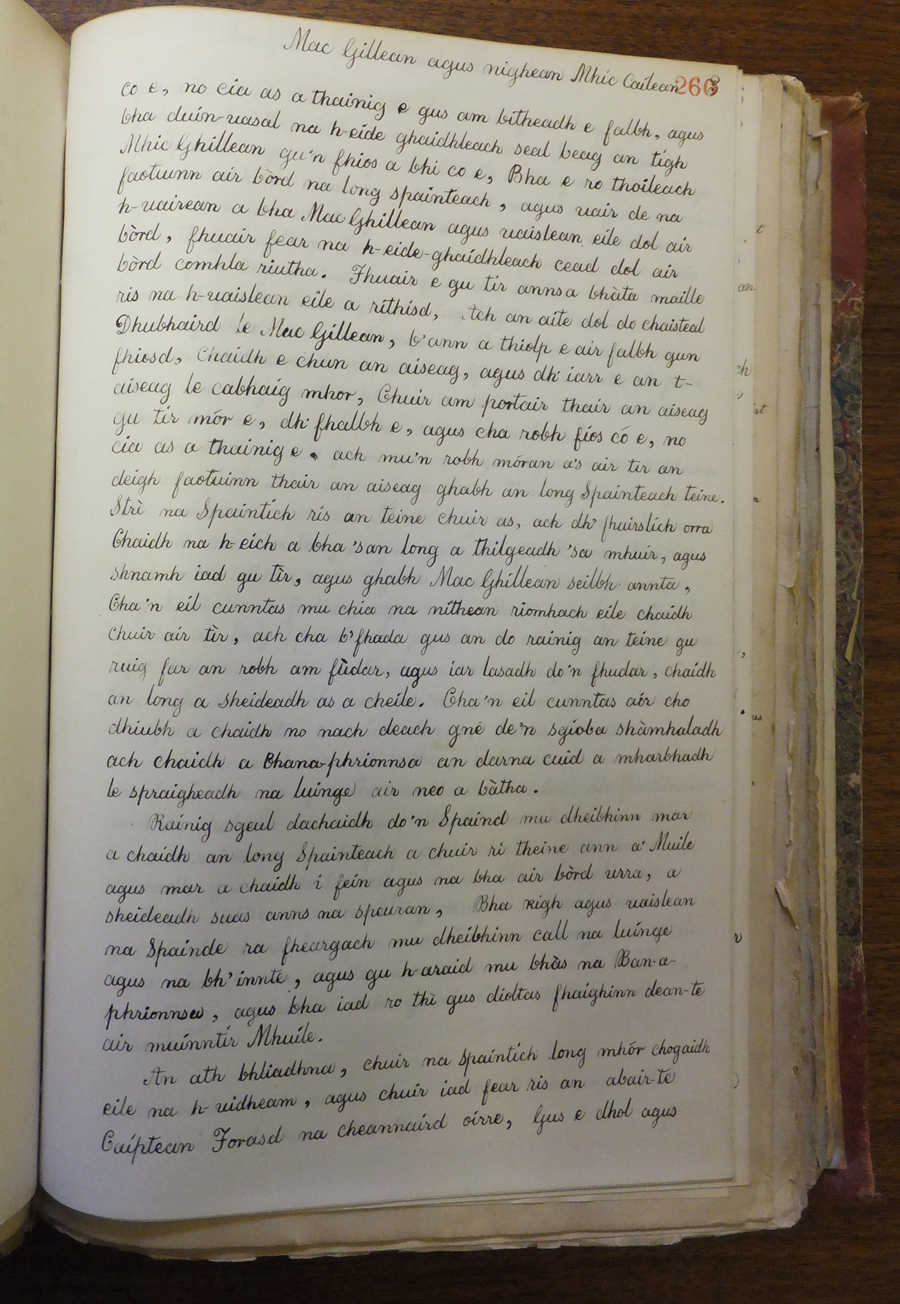 Mac Gillean agus nighean Mhic Cailean 266
co e, no cia as a thainig e gus am bitheadh e falbh, agus
bha duin-uasal na h-eide ghaidhleach seal beag an tigh
Mhic Ghillean gu'n fhios a bhi co e, Bha e ro thoileach
faotuinn air bòrd na long spainteach, agus uair de na
h-uairean a bha Mac Ghillean agus uaislean eile dol air
bòrd, fhuair fear na h-eide-ghaidhleach cead dol air
bòrd comhla riutha. Fhuair e gu tir annsa bhàta maille
ris na h-uaislean eile a rithisd, Ach an aite dol do chaisteal
Dhubhaird le Mac Gillean, b'ann a thiolp e air falbh gun
fhiosd, Chaidh e chun an aiseag, agus dh' iarr e an t-
aiseag le cabhaig mhor, Chuir am portair thair an aiseag
gu tir mór e, dh' fhalbh e, agus cha robh fios có e, no
cia as a thainig e. ach mu'n robh móran a's air tir an
deigh faotuinn thair an aiseag ghabh an long Spainteach teine.
Stri na Spaintich ris an teine chuir as, ach dh' fhairslich orra
Chaidh na h-eich a bha 'san long a thilgeadh 'sa mhuir, agus
shnamh iad gu tìr, agus ghabh Mac Ghillean seilbh annta,
Cha'n eil cunntas mu chia na nithean riomhach eile chaidh
chuir air tìr, ach cha b'fhada gus an do rainig an teine gu
ruig far an robh am fùdar, agus iar lasadh do'n fhudar, chaidh
an long a sheideadh as a cheile. Cha'n eil cunntas air cho
dhiubh a chaidh no nach deach gné de'n sgioba shàmhaladh
ach chaidh a Bhana-phrionnsa an darna cuid a mharbhadh
le spraigheadh na luinge air neo a bàtha.
Rainig sgeul dachaidh do'n Spaind mu dheibhinn mar
a chaidh an long Spainteach a chuir ri theine ann a' Muile
agus mar a chaidh i fein agus na bha air bòrd urra, a
sheideadh suas anns na speuran, Bha righ agus uaislean
na Spainde ra fheargach mu dheibhinn call na luinge
agus na bh' innte, agus gu h-araid mu bhàs na Ban-a-
phrionnsa, agus bha iad ro thì gus dioltas fhaighinn dean-te
air muinntir Mhuile.
An ath bhliadhna, chuir na Spaintich long mhór chogaidh
eile na h-uidheam, agus chuir iad fear ris an abair-te
Caiptean Forasd na cheannaird oirre, Gus e dhol agus